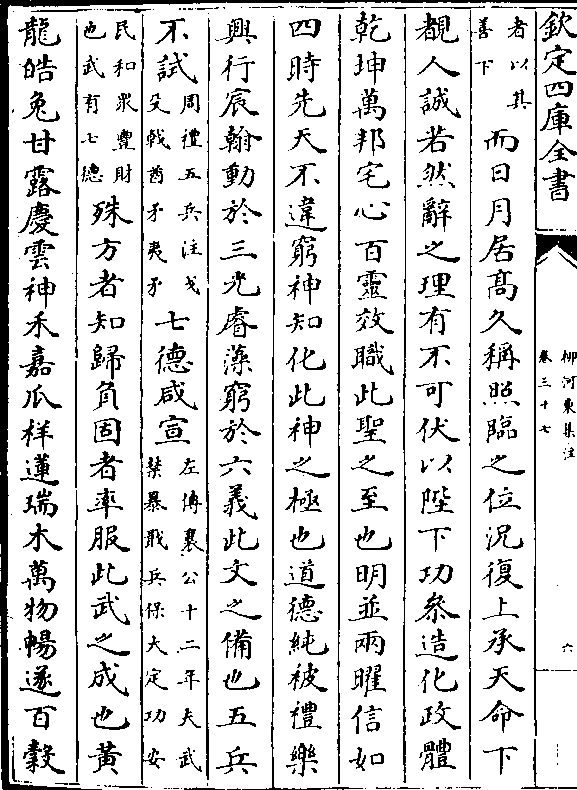 欽定四庫全書
柳河東集注
卷三十七
六
者以其
善下
而日月居高久稱照臨之位況復上承天命下
覩人誠若然辭之理有不可伏以陛下功叅造化政體
乾坤萬邦宅心百靈效職此聖之至也明並兩曜信如
四時先天不違窮神知化此神之極也道德純被禮樂
興行宸翰動於三光睿藻窮於六義此文之備也五兵
不試
周禮五兵注戈
殳戟酋矛夷矛
七德咸宣
左傳襄公十二年夫武
禁暴戢兵保大定功安
民和衆豐財
也武有七德
殊方者知歸負固者率服此武之成也黃
龍皓兔甘露慶雲神禾嘉瓜祥蓮瑞木萬物暢遂百糓